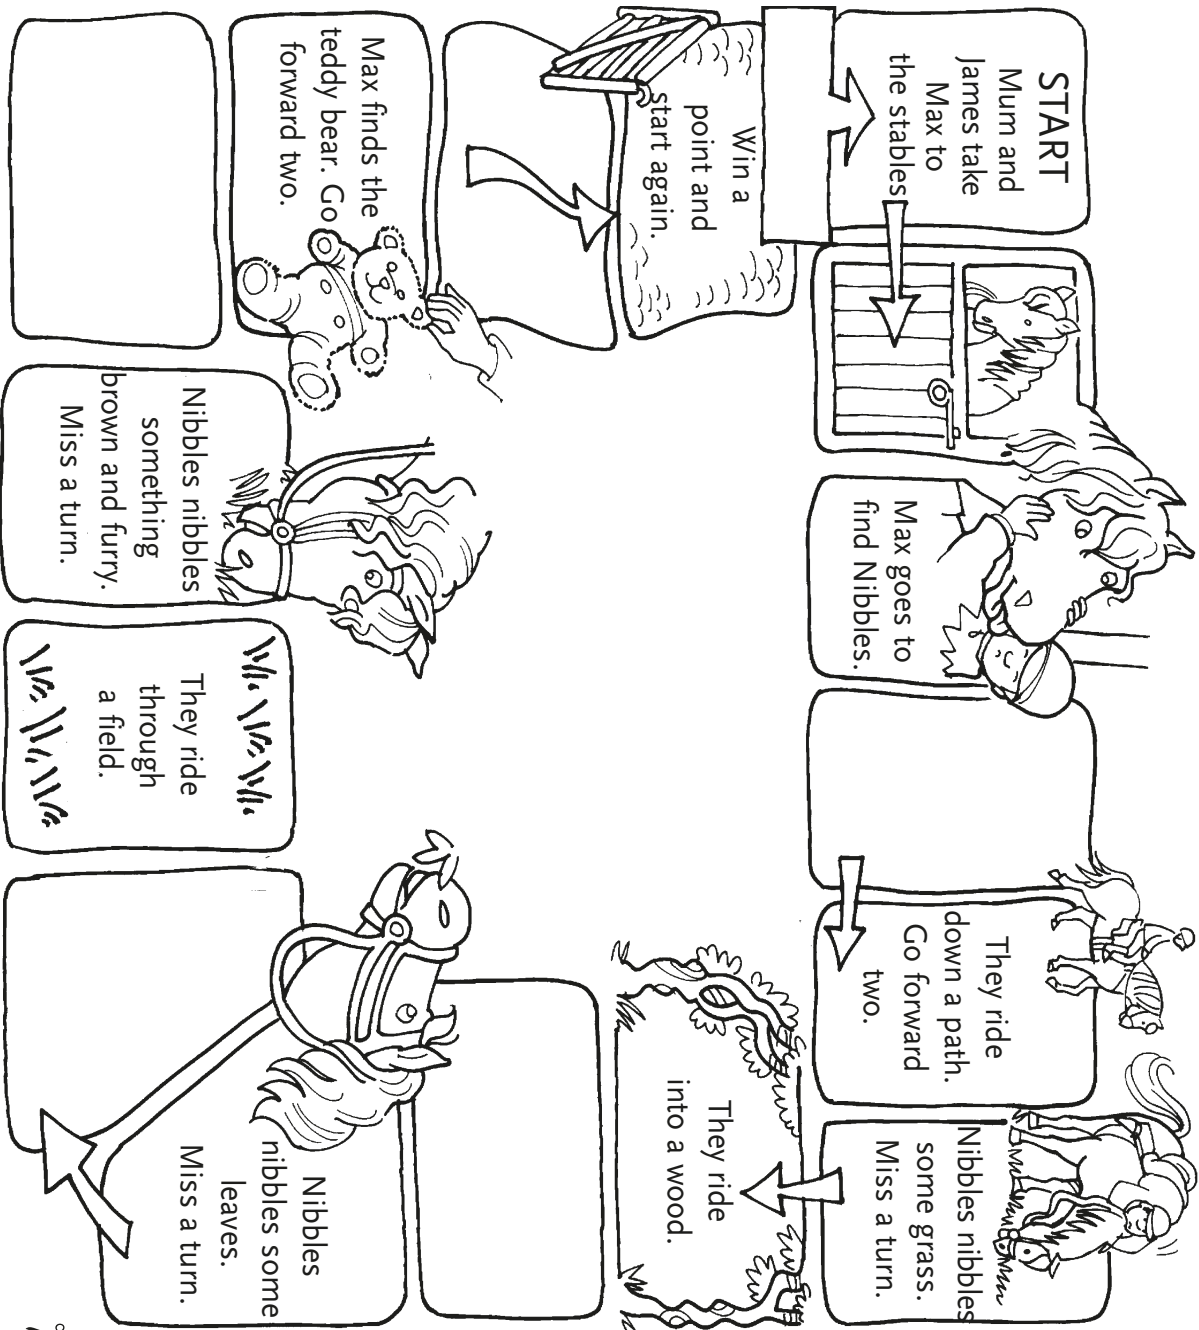 START
Mum and
James take
Max to
the stables
Max goes to
find Nibbles.
They ride
down a path.
Go forward
two.
Nibbles nibbles
some grass.
Miss a turn.
They ride
into a wood.
Nibbles
nibbles some
leaves.
Miss a turn.
They ride
through
a field.
Nibbles nibbles
something
brown and furry.
Miss a turn.
Max finds the
teddy bear. Go
forward two.
Win a
point and
start again.